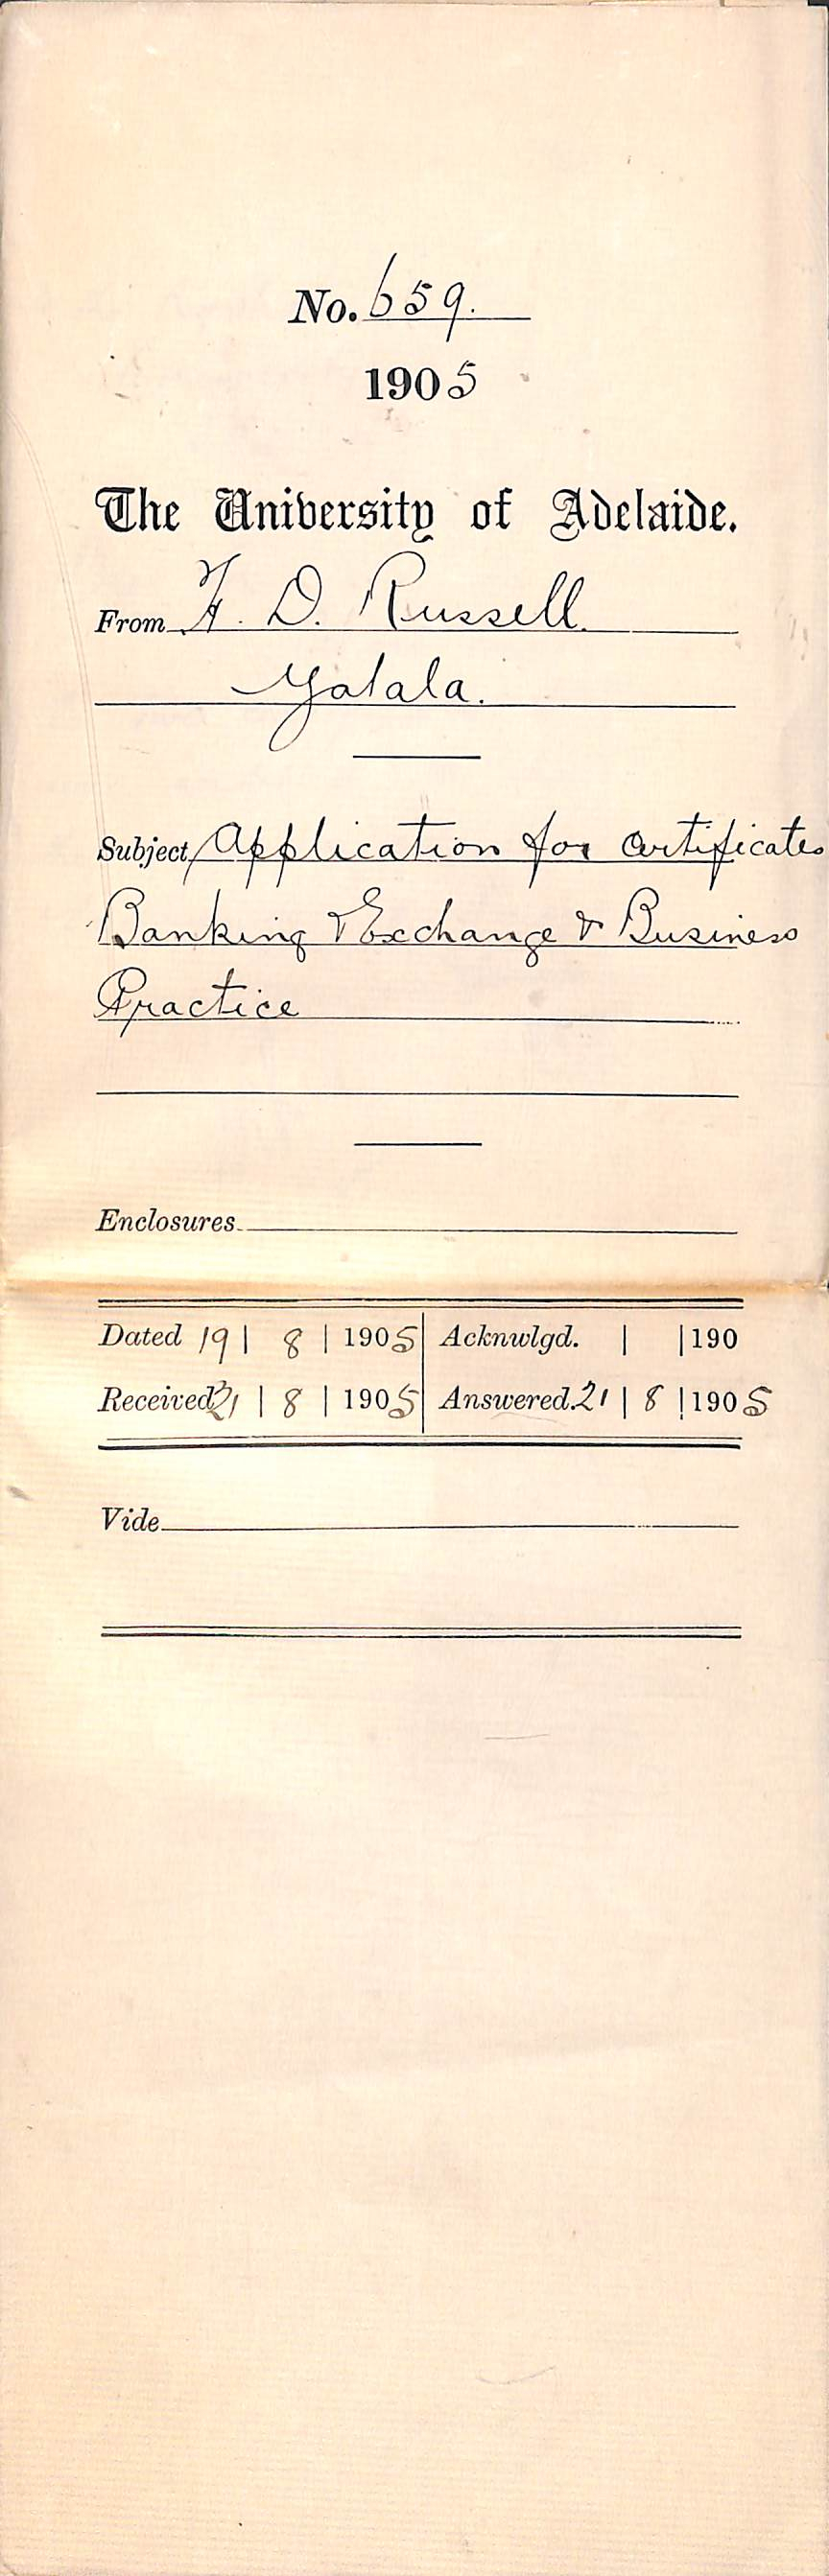 No. 659.
1905
The University of Adelaide.
From F. D. Russell.
Yatala.
Subject Application for Certificates
Banking & Exchange & Business
Practice
Enclosures
Dated 19 | 8 | 1905 Acknwlgd. | | 190
Received 21 | 8 | 1905 Answered. 21 | 8 | 1905
Vide